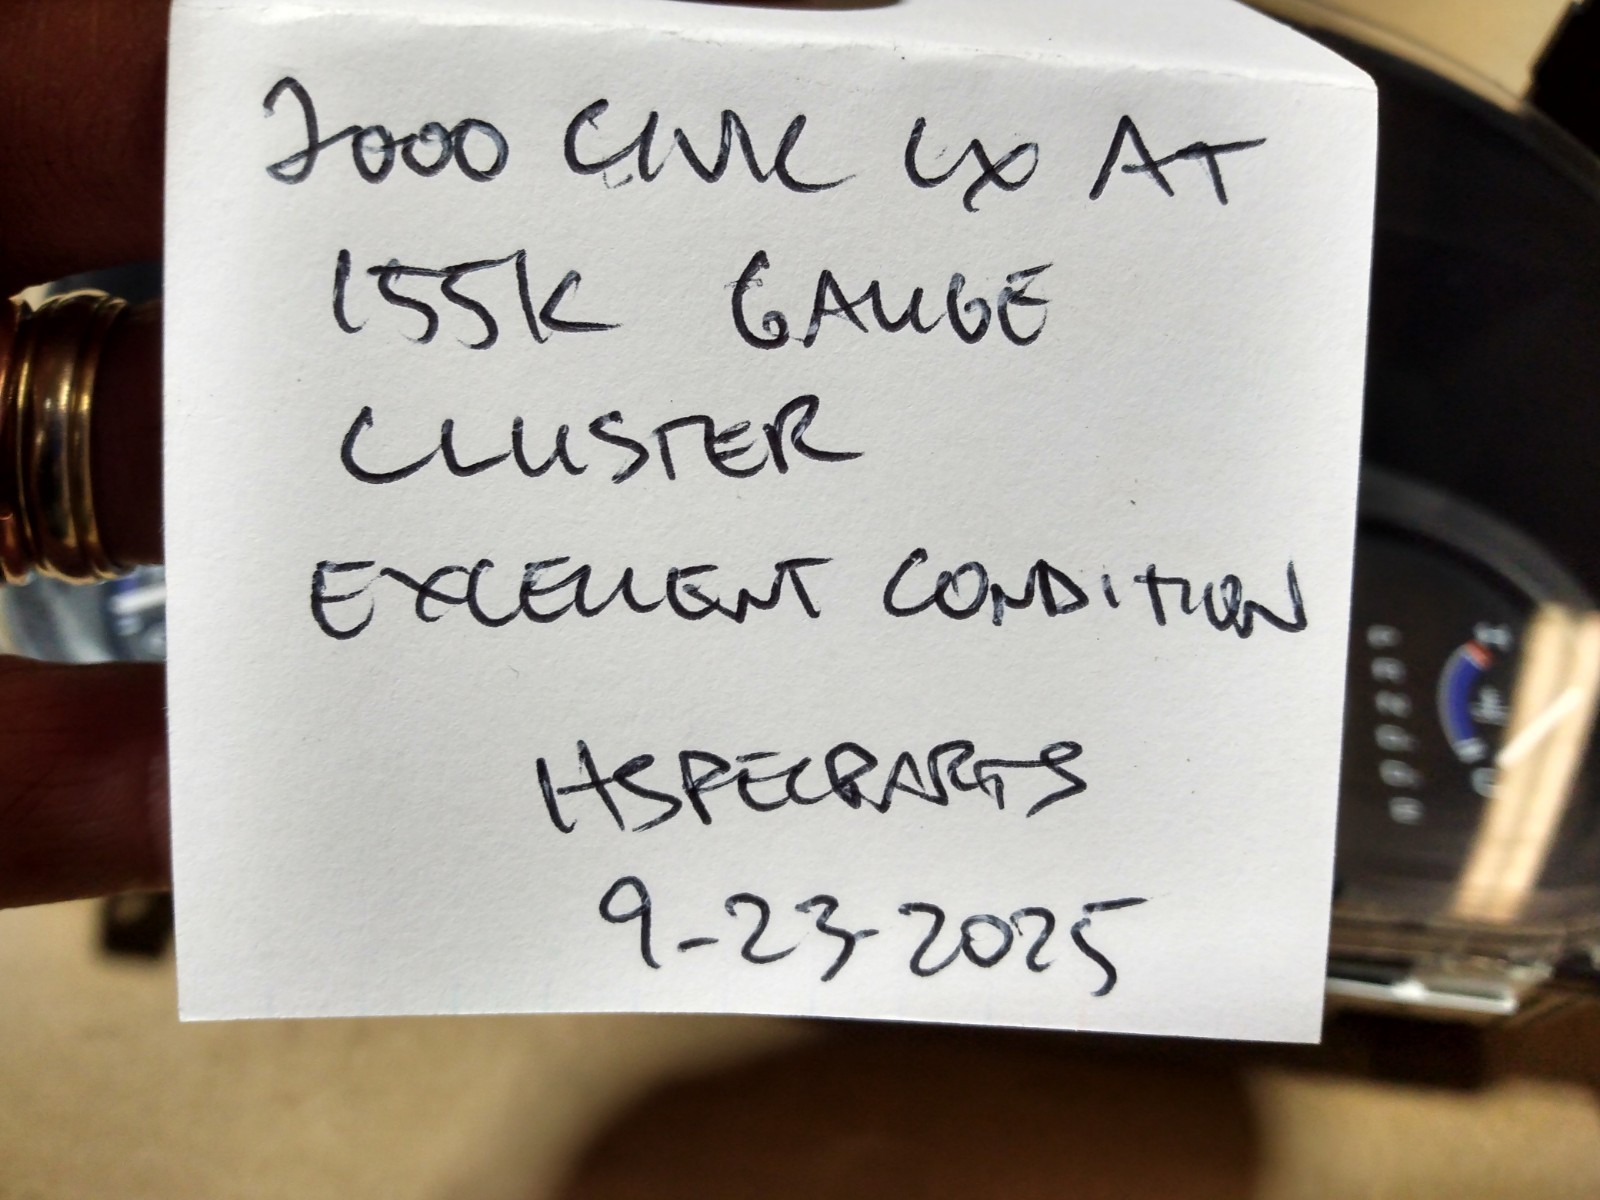 2000 CIVIC LX AT
155K GAUGE
CLUSTER
EXCELLENT CONDITION
HSPECPARTS
9-23-2025
H
C